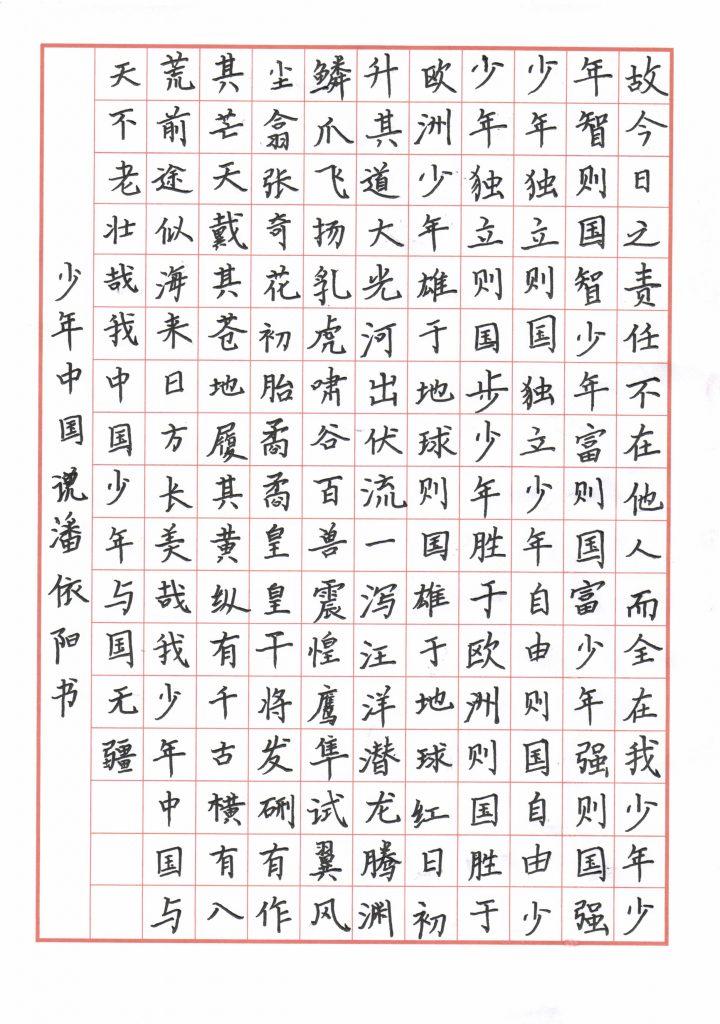 故今日之责任不在他人而全在我少年少
年智则国智少年富则国富少年强则国强
少年独立则国独立少年自由则国自由少
少年独立则国步少年胜于欧洲则国胜于
欧洲少年雄于地球则国雄于地球红日初
升其道大光河出伏流一泻汪洋潜龙腾渊
鳞爪飞扬乳虎啸谷百兽震惶鹰隼试翼风
尘翕张奇花初胎矞矞皇皇干将发硎有作
其芒天戴其苍地履其黄纵有千古横有八
荒前途似海来日方长美哉我少年中国与
天不老壮哉我中国少年与国无疆
少年中国说潘依阳书